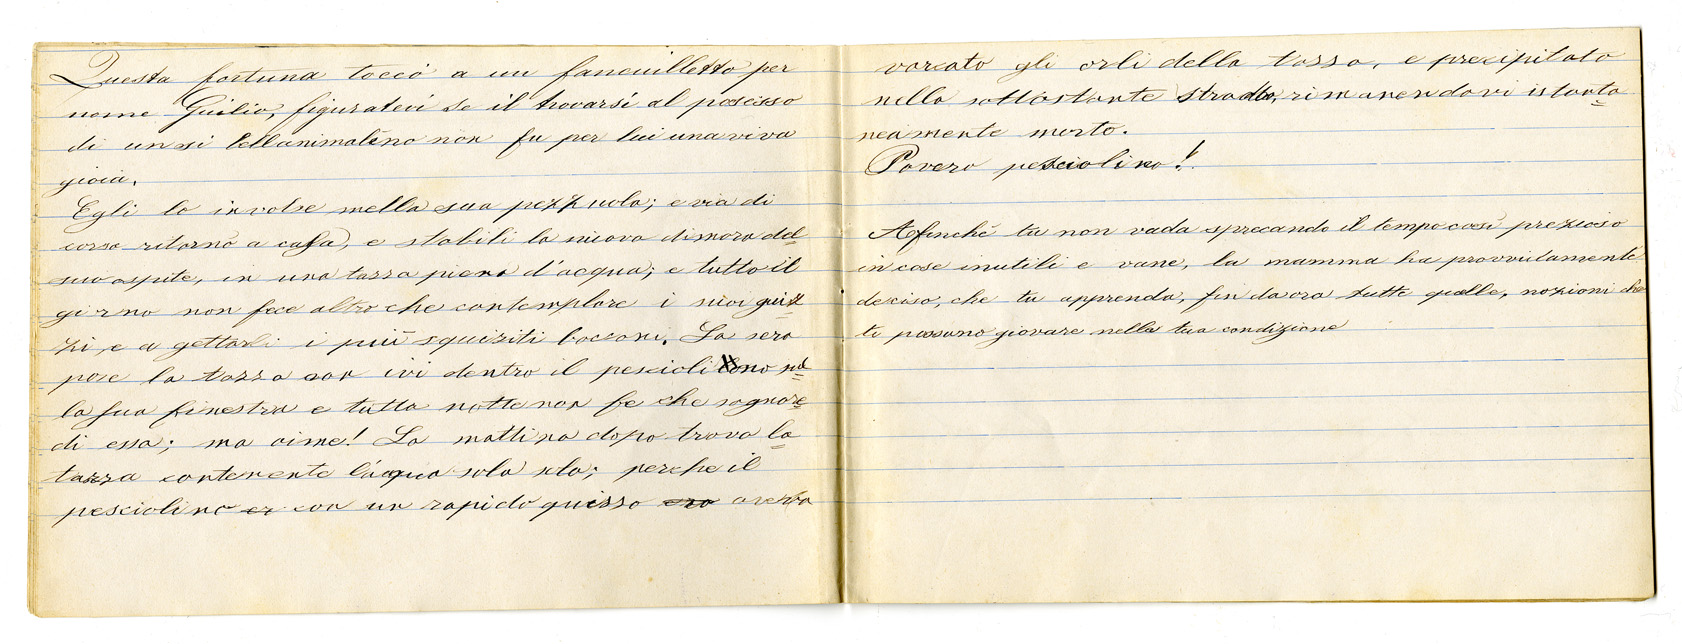 Questa fortuna toccò a un fanciulletto per
nome Giulio, figuratevi se il trovarsi al possesso
di un si bell'animalino non fu per lui una viva
gioia.
Egli lo involse nella sua pezzuola; e via di
corsa ritornò a casa, e stabilì la nuova dimora del
suo ospite, in una tazza piena d'acqua; e tutto il
giorno non fece altro che contemplare i suoi guiz
zi, e a gettarli i più squisiti bocconi. La sera
pose la tazza con ivi dentro il pesciolino sul
la sua finestra e tutta notte non fe che sognare
di essa; ma aime! La mattina dopo trova la
tazza contenente l'acqua sola sola; perche il
pesciolino con un rapido guizzo aveva
varcato gli orli della tazza, e precipitato
nella sottostante strada, rimanendovi istanta
neamente morto.
Povero pesciolino!
Afinchè tu non vada sprecando il tempo così prezioso
in cose inutili e vane, la mamma ha provvidamente
deciso, che tu apprenda, fin da ora tutte quelle, nozioni che
ti possono giovare nella tua condizione